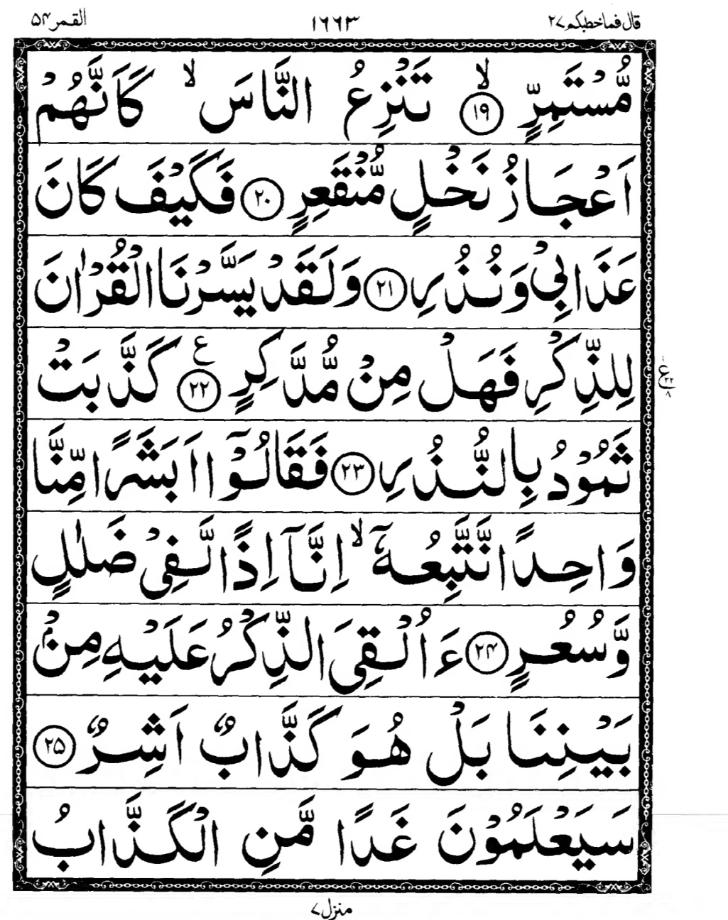 القمر ۵۴ ۱٦٦۳ قال فماخطبكم ۲۷
مُّسْتَمِرٍّ ۙ﴿۱۹﴾ تَنْزِعُ النَّاسَ ۙ كَاَنَّهُمْ
اَعْجَازُ نَخْلٍ مُّنْقَعِرٍ ﴿۲۰﴾ فَكَيْفَ كَانَ
عَذَابِيْ وَنُذُرِ ﴿۲۱﴾ وَلَقَدْ يَسَّرْنَا الْقُرْاٰنَ
لِلذِّكْرِ فَهَلْ مِنْ مُّدَّكِرٍ ﴿۲۲﴾ ع كَذَّبَتْ
ع ۲۲ ۸
ثَمُوْدُ بِالنُّذُرِ ﴿۲۳﴾ فَقَالُوْٓا اَبَشَرًا مِّنَّا
وَاحِدًا نَّتَّبِعُهٗٓ ۙ اِنَّآ اِذًا لَّفِيْ ضَلٰلٍ
وَّسُعُرٍ ﴿۲۴﴾ ءَاُلْقِيَ الذِّكْرُ عَلَيْهِ مِنْۢ
بَيْنِنَا بَلْ هُوَ كَذَّابٌ اَشِرٌ ﴿۲۵﴾
سَيَعْلَمُوْنَ غَدًا مَّنِ الْكَذَّابُ
منزل ۷